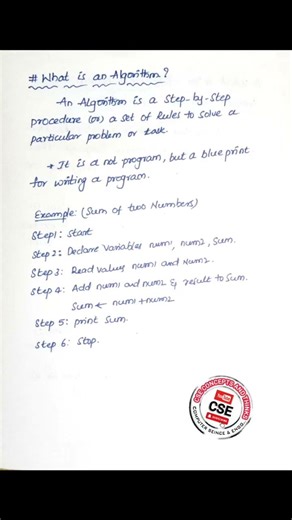 # What is an Algorithm?
An Algorithm is a Step-by-Step
procedure (or) a set of Rules to solve a
particular problem or task.
* It is a not program, but a blue print
for writing a program.
Example: (Sum of two Numbers)
Step1: Start
Step 2: Declare Variables num1, num2, Sum.
Step 3: Read values num1 and Num2.
Step 4: Add num1 and num2 & result to Sum.
Sum ← num1 + num2
Step 5: print Sum.
Step 6: Stop.
CSE CONCEPTS AND THINKS
CSE
COMPUTER SEINCE & ENGG..